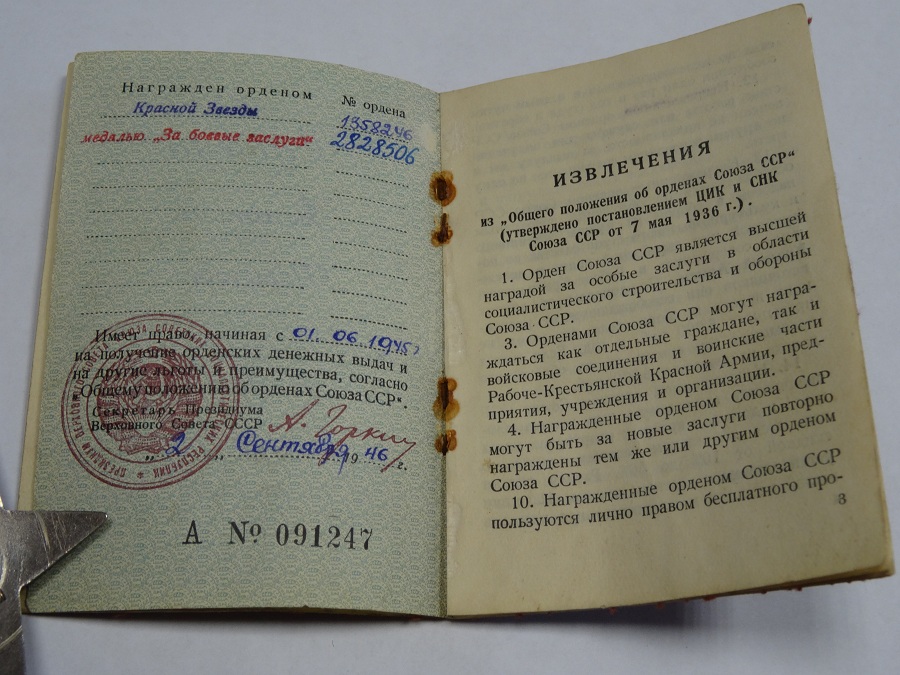 Награжден орденом
№ ордена
Красной Звезды
1358246
медалью „За боевые заслуги“
2828506
Имеет право, начиная с 01. 06 1945 г
на получение орденских денежных выдач и
на другие льготы и преимущества, согласно
„Общему положению об орденах Союза ССР“.
Секретарь Президиума
Верховного Совета СССР
А. Горкин
„ 2 „ Сентября 19 46 г.
А № 091247
ИЗВЛЕЧЕНИЯ
из „Общего положения об орденах Союза ССР“
(утверждено постановлением ЦИК и СНК
Союза ССР от 7 мая 1936 г.).
1. Орден Союза ССР является высшей
наградой за особые заслуги в области
социалистического строительства и обороны
Союза ССР.
3. Орденами Союза ССР могут награ-
ждаться как отдельные граждане, так и
войсковые соединения и воинские части
Рабоче-Крестьянской Красной Армии, пред-
приятия, учреждения и организации.
4. Награжденные орденом Союза ССР
могут быть за новые заслуги повторно
награждены тем же или другим орденом
Союза ССР.
10. Награжденные орденом Союза ССР
пользуются лично правом бесплатного про-
3